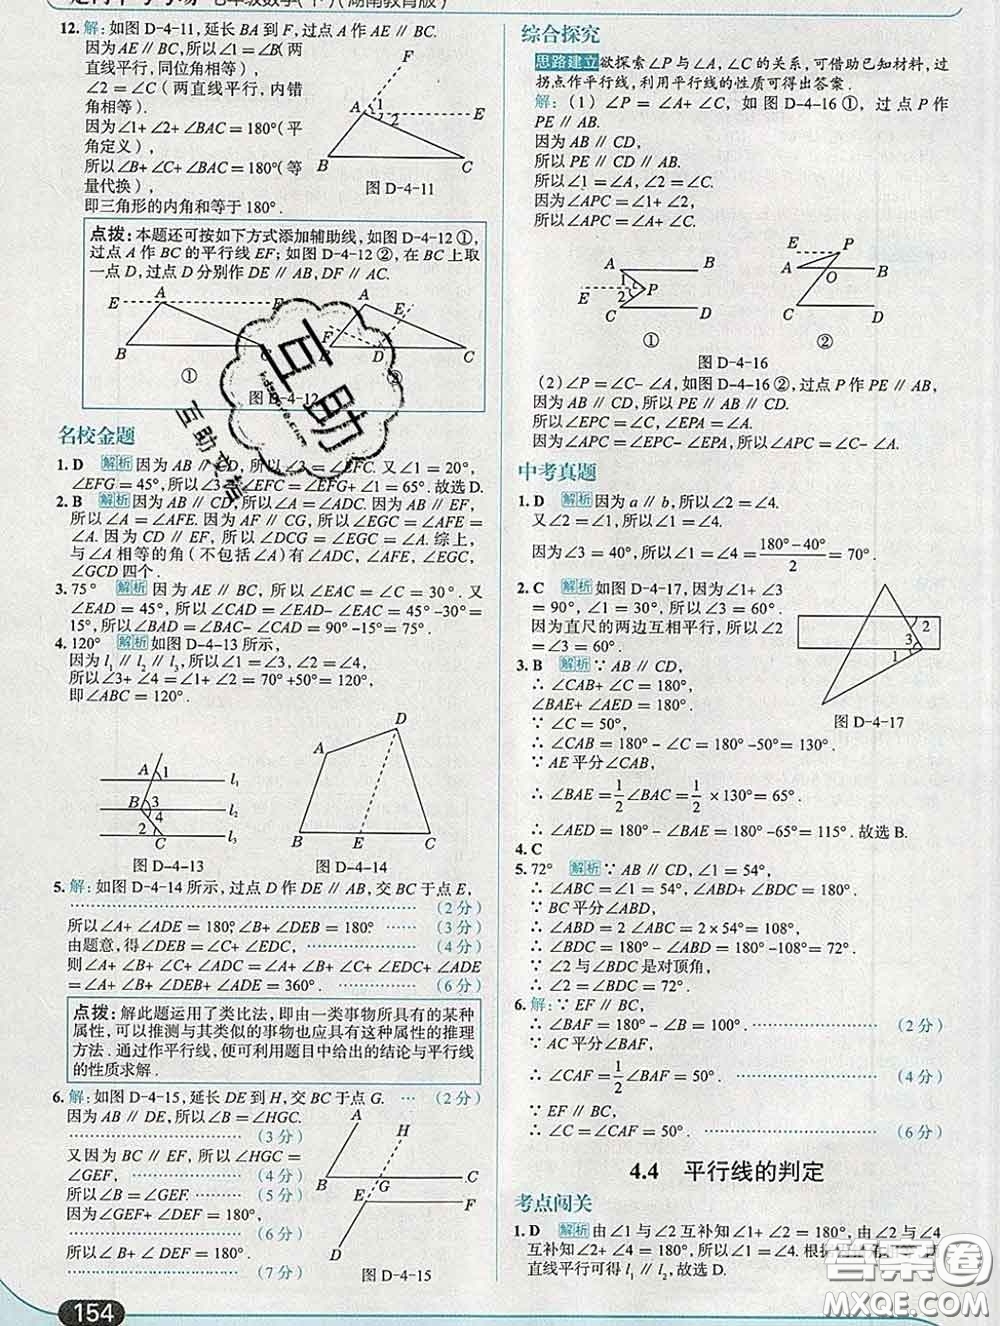 12. 解:如图 D-4-11,延长 BA 到 F,过点 A 作 AE∥BC.
因为 AE∥BC,所以∠1=∠B(两
直线平行,同位角相等),
∠2=∠C(两直线平行,内错
角相等).
因为∠1+∠2+∠BAC=180°(平
角定义),
所以∠B+∠C+∠BAC=180°(等
量代换),
即三角形的内角和等于180°.
A 1 2 E
B C
图 D-4-11
点拨:本题还可按如下方式添加辅助线,如图 D-4-12 ①,
过点 A 作 BC 的平行线 EF;如图 D-4-12 ②,在 BC 上取
一点 D,过点 D 分别作 DE∥AB,DF∥AC.
E A
B
A E
F
D C
① ②
图 D-4-12
名校金题
1. D 解析 因为 AB∥CD,所以∠3=∠EFC. 又∠1=20°,
∠EFG=45°,所以∠3=∠EFC=∠EFG+∠1=65°. 故选 D.
2. B 解析 因为 AB∥CD,所以∠A=∠ADC. 因为 AB∥EF,
所以∠A=∠AFE. 因为 AF∥CG,所以∠EGC=∠AFE=
∠A. 因为 CD∥EF,所以∠DCG=∠EGC=∠A. 综上,
与∠A 相等的角(不包括∠A)有∠ADC,∠AFE,∠EGC,
∠GCD 四个.
3. 75° 解析 因为 AE∥BC,所以∠EAC=∠C=30°. 又
∠EAD=45°,所以∠CAD=∠EAD-∠EAC=45°-30°=
15°,所以∠BAD=∠BAC-∠CAD=90°-15°=75°.
4. 120° 解析 如图 D-4-13 所示,
因为 l₁∥l₂∥l₃,所以∠1=∠3,∠2=∠4,
所以∠3+∠4=∠1+∠2=70°+50°=120°,
即∠ABC=120°.
A 1 l₁
B 3 4 l₂
2 C l₃
图 D-4-13
D
A
B E C
图 D-4-14
5. 解:如图 D-4-14 所示,过点 D 作 DE∥AB,交 BC 于点 E,
(2 分)
所以∠A+∠ADE=180°,∠B+∠DEB=180°. (3 分)
由题意,得∠DEB=∠C+∠EDC, (4 分)
则∠A+∠B+∠C+∠ADC=∠A+∠B+∠C+∠EDC+∠ADE
=∠A+∠B+∠DEB+∠ADE=360°. (6 分)
点拨:解此题运用了类比法,即由一类事物所具有的某种
属性,可以推测与其类似的事物也应具有这种属性的推理
方法.通过作平行线,便可利用题目中给出的结论与平行线
的性质求解.
6. 解:如图 D-4-15,延长 DE 到 H,交 BC 于点 G. … (2 分)
因为 AB∥DE,所以∠B=∠HGC.
(3 分)
又因为 BC∥EF,所以∠HGC=
∠GEF, (4 分)
所以∠B=∠GEF. (5 分)
又因为∠DEF+∠GEF=180°,
(6 分)
所以∠B+∠DEF=180°.
(7 分)
A H
B G C
E F
D
图 D-4-15
154
综合探究
思路建立 欲探索∠P 与∠A,∠C 的关系,可借助已知材料,过
拐点作平行线,利用平行线的性质可得出答案.
解:(1)∠P=∠A+∠C,如图 D-4-16 ①,过点 P 作
PE∥AB.
因为 AB∥CD,
所以 PE∥CD∥AB.
所以∠1=∠A,∠2=∠C.
因为∠APC=∠1+∠2,
所以∠APC=∠A+∠C.
A B
E 1 2 P
C D
①
E P
A O B
C D
②
图 D-4-16
(2)∠P=∠C-∠A,如图 D-4-16 ②,过点 P 作 PE∥AB.
因为 AB∥CD,所以 PE∥AB∥CD.
所以∠EPC=∠C,∠EPA=∠A.
因为∠APC=∠EPC-∠EPA,所以∠APC=∠C-∠A.
中考真题
1. D 解析 因为 a∥b,所以∠2=∠4.
又∠2=∠1,所以∠1=∠4.
因为∠3=40°,所以∠1=∠4=(180°-40°)/2=70°.
2. C 解析 如图 D-4-17,因为∠1+∠3
=90°,∠1=30°,所以∠3=60°.
因为直尺的两边互相平行,所以∠2
=∠3=60°.
2 3 1
图 D-4-17
3. B 解析 ∵AB∥CD,
∴∠CAB+∠C=180°,
∠BAE+∠AED=180°.
∵∠C=50°,
∴∠CAB=180°-∠C=180°-50°=130°.
∵AE 平分∠CAB,
∴∠BAE=1/2∠BAC=1/2×130°=65°.
∴∠AED=180°-∠BAE=180°-65°=115°. 故选 B.
4. C
5. 72° 解析 ∵AB∥CD,∠1=54°,
∴∠ABC=∠1=54°,∠ABD+∠BDC=180°.
∵BC 平分∠ABD,
∴∠ABD=2∠ABC=2×54°=108°,
∴∠BDC=180°-∠ABD=180°-108°=72°.
∵∠2 与∠BDC 是对顶角,
∴∠2=∠BDC=72°.
6. 解:∵EF∥BC,
∴∠BAF=180°-∠B=100°. (2 分)
∵AC 平分∠BAF,
∴∠CAF=1/2∠BAF=50°. (4 分)
∵EF∥BC,
∴∠C=∠CAF=50°. (6 分)
4.4 平行线的判定
考点闯关
1. D 解析 由∠1 与∠2 互补知∠1+∠2=180°,由∠2 与∠4
互补知∠2+∠4=180°,所以∠1=∠4.
直线平行可得 l₁∥l₂,故选 D.
互助
互助文档
答案卷
MXQE.COM